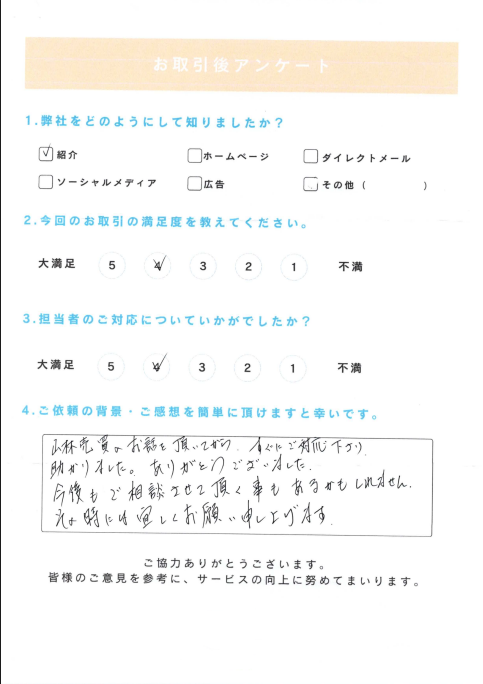 お取引後アンケート
1.弊社をどのようにして知りましたか?
✓ 紹介 ホームページ ダイレクトメール
ソーシャルメディア 広告 その他( )
2.今回のお取引の満足度を教えてください。
大満足 5 4 3 2 1 不満
3.担当者のご対応についていかがでしたか?
大満足 5 4 3 2 1 不満
4.ご依頼の背景・ご感想を簡単に頂けますと幸いです。
山林売買のお話を頂いてから、すぐにご対応下さり
助かりました。ありがとうございました。
今後もご相談させて頂く事もあるかもしれません。
その時には宜しくお願い申し上げます。
ご協力ありがとうございます。
皆様のご意見を参考に、サービスの向上に努めてまいります。